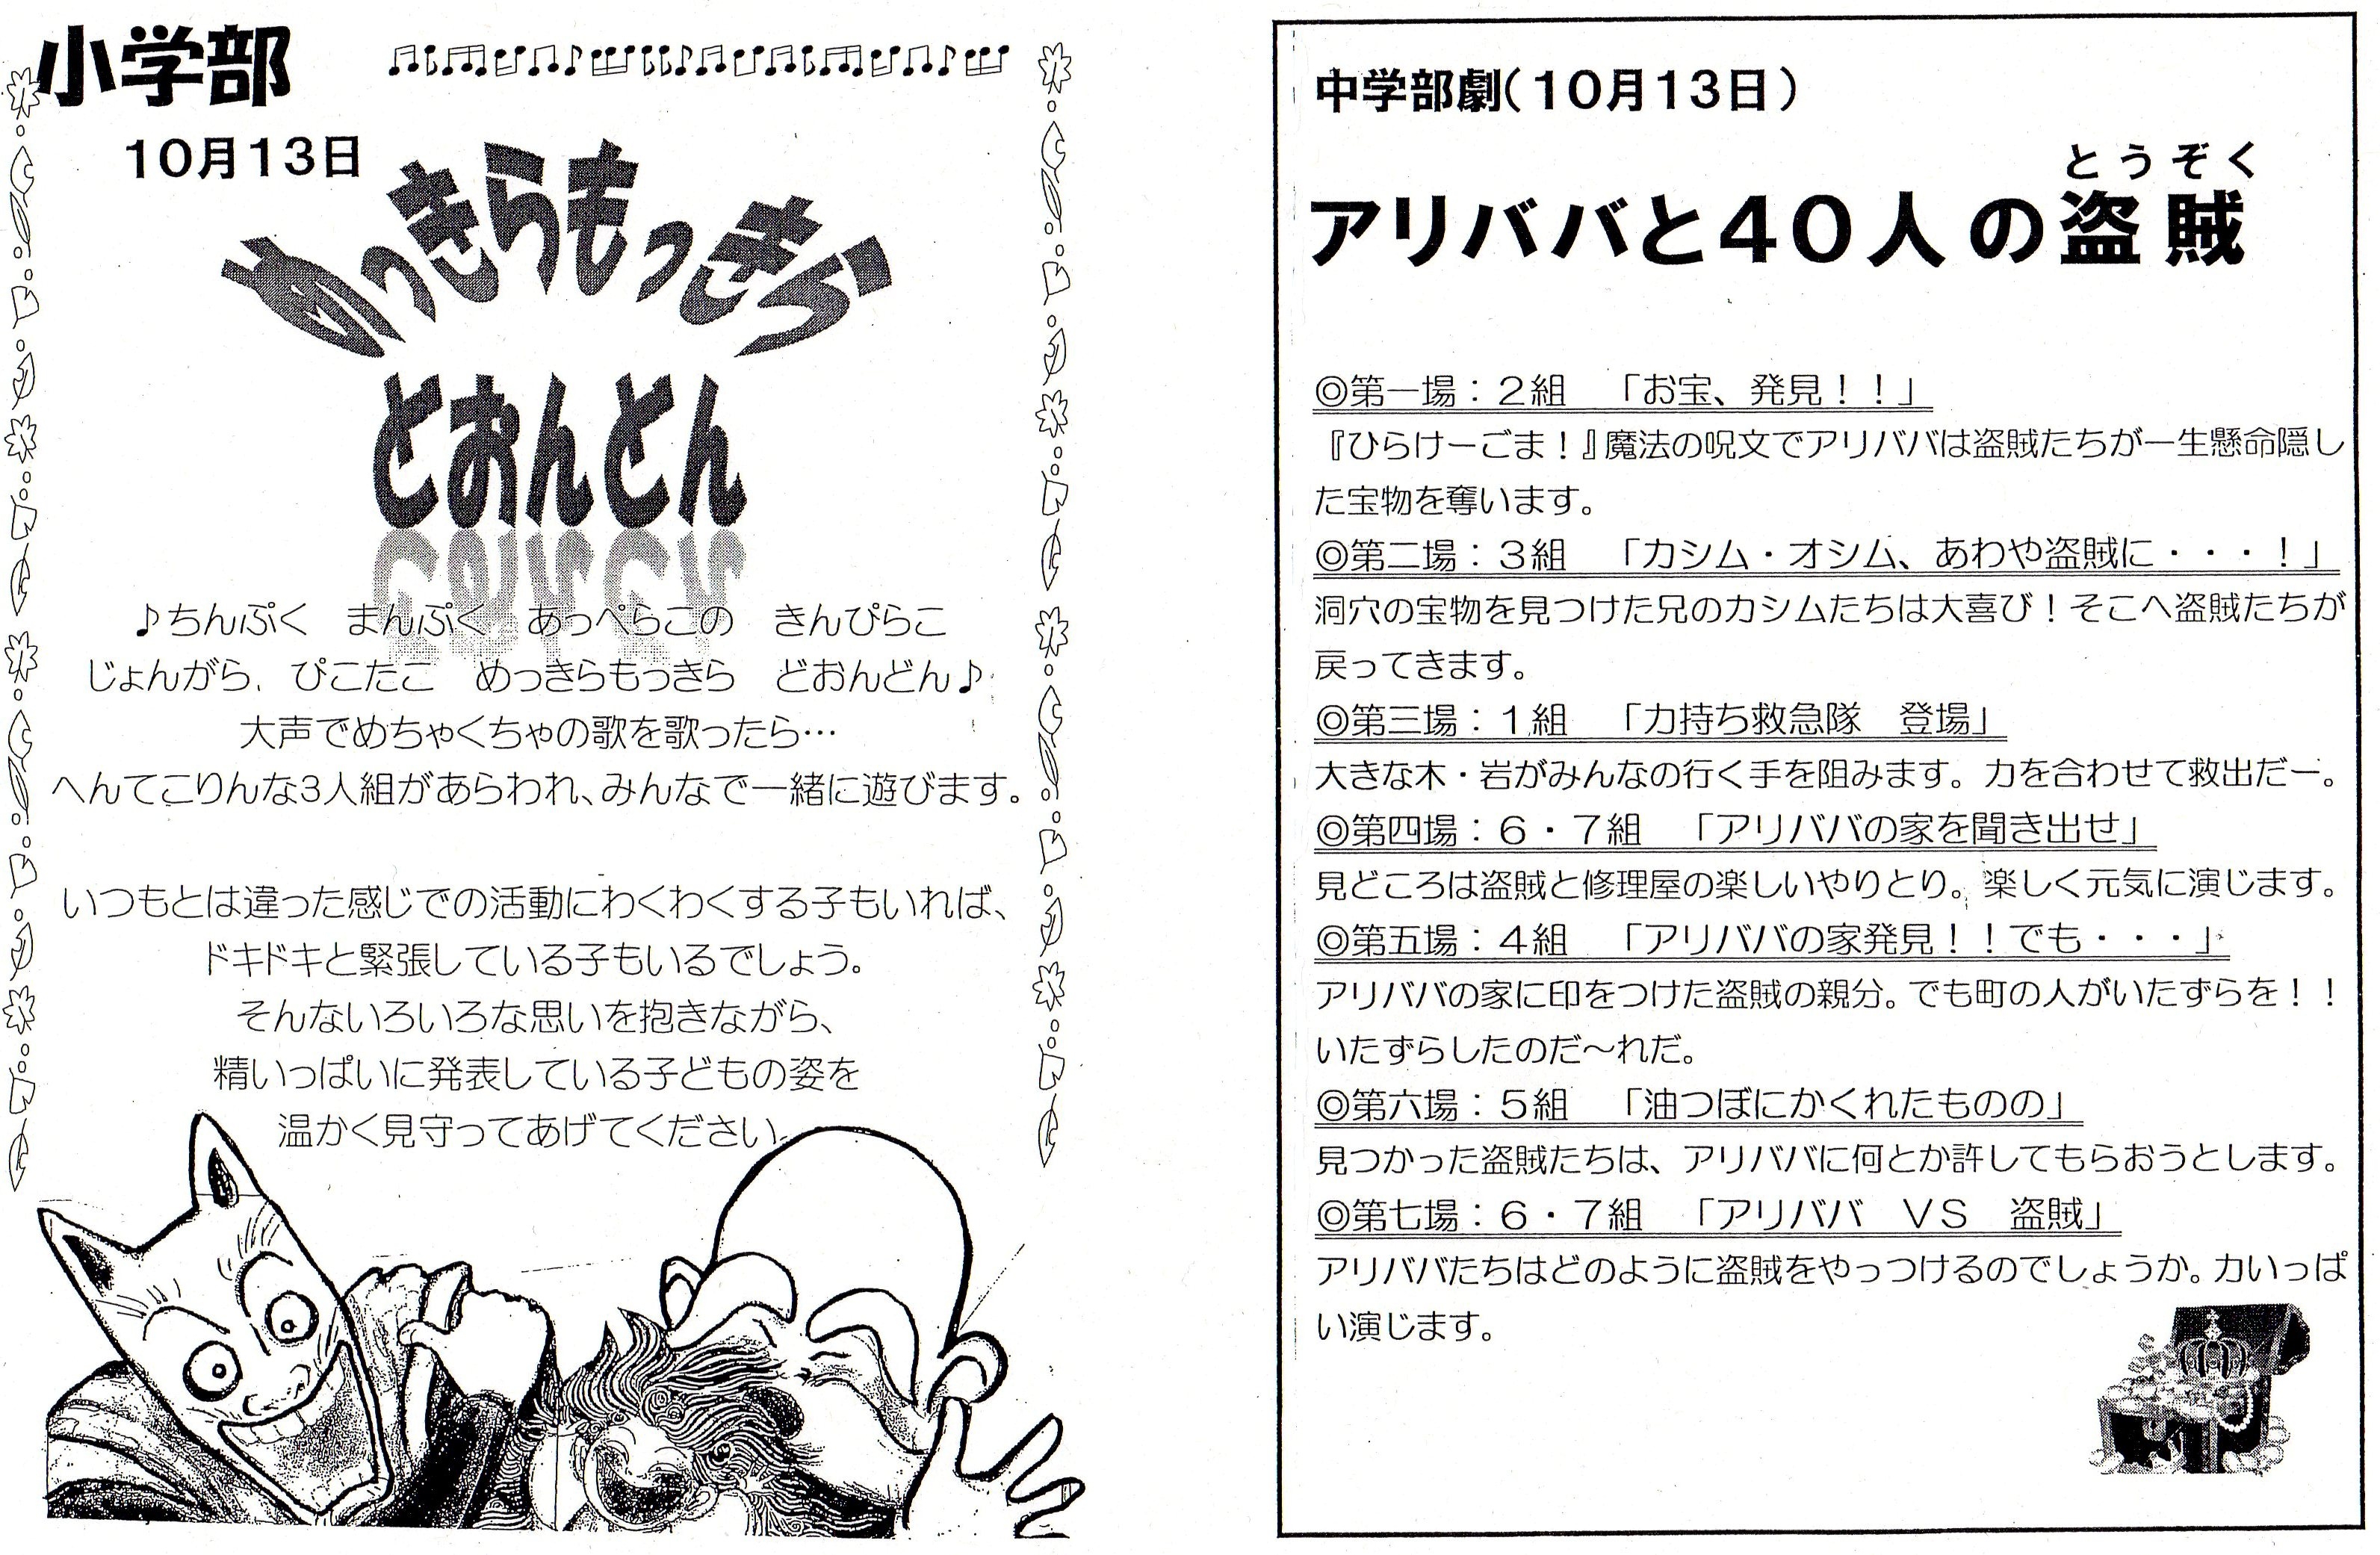 小学部
10月13日
めっきらもっきら
どおんどん
♪ちんぷく　まんぷく　あっぺらこの　きんぴらこ
じょんがら、ぴこたこ　めっきらもっきら　どおんどん♪
大声でめちゃくちゃの歌を歌ったら…
へんてこりんな3人組があらわれ、みんなで一緒に遊びます。
いつもとは違った感じでの活動にわくわくする子もいれば、
ドキドキと緊張している子もいるでしょう。
そんないろいろな思いを抱きながら、
精いっぱいに発表している子どもの姿を
温かく見守ってあげてください。
中学部劇（10月13日）
とうぞく
アリババと40人の盗賊
◎第一場：２組　「お宝、発見！！」
『ひらけーごま！』魔法の呪文でアリババは盗賊たちが一生懸命隠し
た宝物を奪います。
◎第二場：３組　「カシム・オシム、あわや盗賊に・・・！」
洞穴の宝物を見つけた兄のカシムたちは大喜び！そこへ盗賊たちが
戻ってきます。
◎第三場：１組　「力持ち救急隊　登場」
大きな木・岩がみんなの行く手を阻みます。力を合わせて救出だー。
◎第四場：６・７組　「アリババの家を聞き出せ」
見どころは盗賊と修理屋の楽しいやりとり。楽しく元気に演じます。
◎第五場：４組　「アリババの家発見！！でも・・・」
アリババの家に印をつけた盗賊の親分。でも町の人がいたずらを！！
いたずらしたのだ～れだ。
◎第六場：５組　「油つぼにかくれたものの」
見つかった盗賊たちは、アリババに何とか許してもらおうとします。
◎第七場：６・７組　「アリババ　ＶＳ　盗賊」
アリババたちはどのように盗賊をやっつけるのでしょうか。力いっぱ
い演じます。